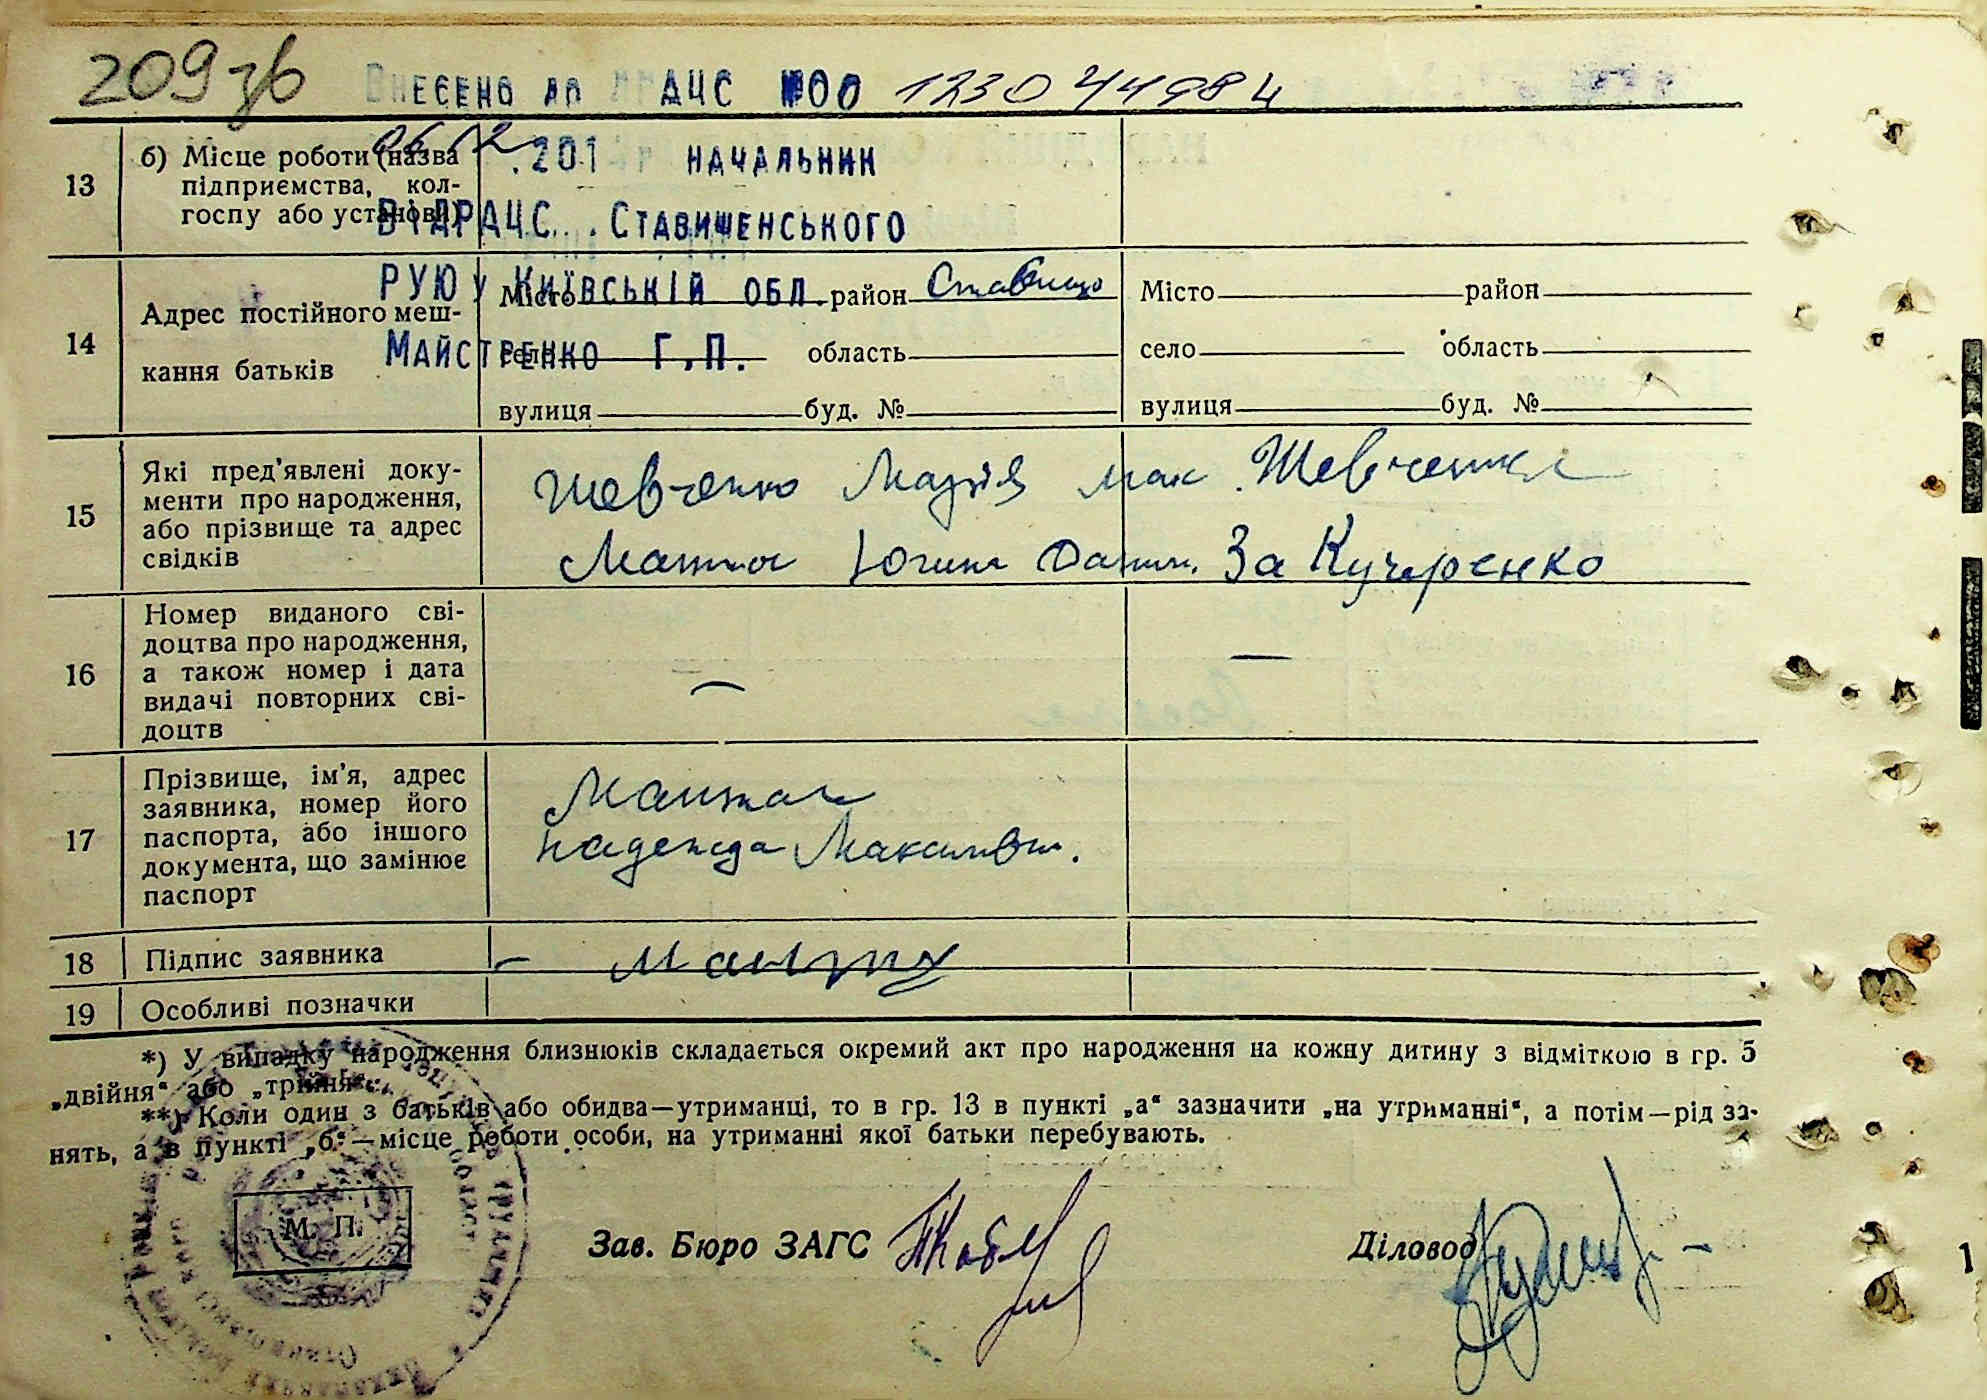 209 зв
Внесено до ДРАЦС №00 1230 44984
06 12 .201 р начальник
ВіДРАЦС Ставищенського
РУЮ у Київській обл.
Майстренко Г.П.
13 б) Місце роботи (назва
підприємства, кол-
госпу або установи)
14 Адрес постійного меш-
кання батьків
Місто район Ставище
село область
вулиця буд. №
Місто район
село область
вулиця буд. №
15 Які пред'явлені доку-
менти про народження,
або прізвище та адрес
свідків
Шевченко Марія Мак. Шевченка
Юхим За Кучеренко
16 Номер виданого сві-
доцтва про народження,
а також номер і дата
видачі повторних сві-
доцтв
— —
17 Прізвище, ім'я, адрес
заявника, номер його
паспорта, або іншого
документа, що замінює
паспорт
Надежда Максимовн.
18 Підпис заявника
19 Особливі позначки
*) У випадку народження близнюків складається окремий акт про народження на кожну дитину з відміткою в гр. 5
„двійня“ або „трійня“.
**) Коли один з батьків або обидва—утриманці, то в гр. 13 в пункті „а“ зазначити „на утриманні“, а потім—рід за-
нять, а в пункті „б“—місце роботи особи, на утриманні якої батьки перебувають.
М. П.
Зав. Бюро ЗАГС
Діловод
1